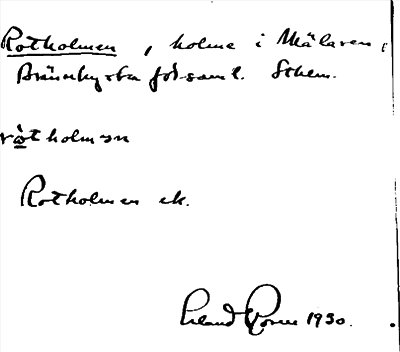 Rotholmen, holme i Mälaren,
Brännkyrka församl. Sthlm.
ròtholmən
Rotholmen ek.
Erland Rosell 1930.